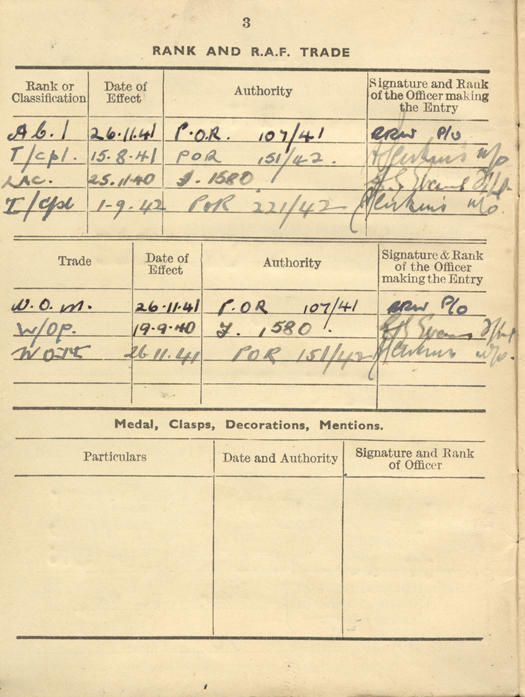 3
RANK AND R.A.F. TRADE
Rank or Classification Date of Effect Authority Signature and Rank of the Officer making the Entry
A.C.1 26.11.41 P.O.R. 107/41 P/O
T/Cpl. 15.8.41 POR 151/42.
LAC. 25.11.40 1580
T/Cpl 1-9.42 POR 221/42
Trade Date of Effect Authority Signature & Rank of the Officer making the Entry
W.O.M. 26.11.41 P.OR 107/41 P/O
W/OP. 19-9.40 1580. Evans
26.11.41 POR 151/42
Medal, Clasps, Decorations, Mentions.
Particulars Date and Authority Signature and Rank of Officer